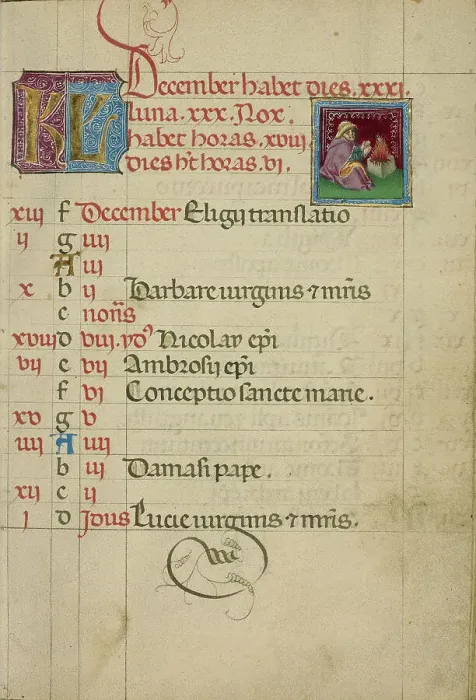 KL
December habet dies. xxxi.
luna. xxx. Nox.
habet horas. xviij.
dies ht horas. vi.
xiij f December Eligij translatio
ij g iiij
A iij
x b ij Barbare uirginis ⁊ mris
c nonis
xviij d viij. yd9 Nicolay epi
vij e vij Ambrosij epi
f vi Conceptio sancte marie.
xv g v
iiij A iiij
b iij Damasi pape.
xij c ij
j d Jdus Lucie uirginis ⁊ mris.